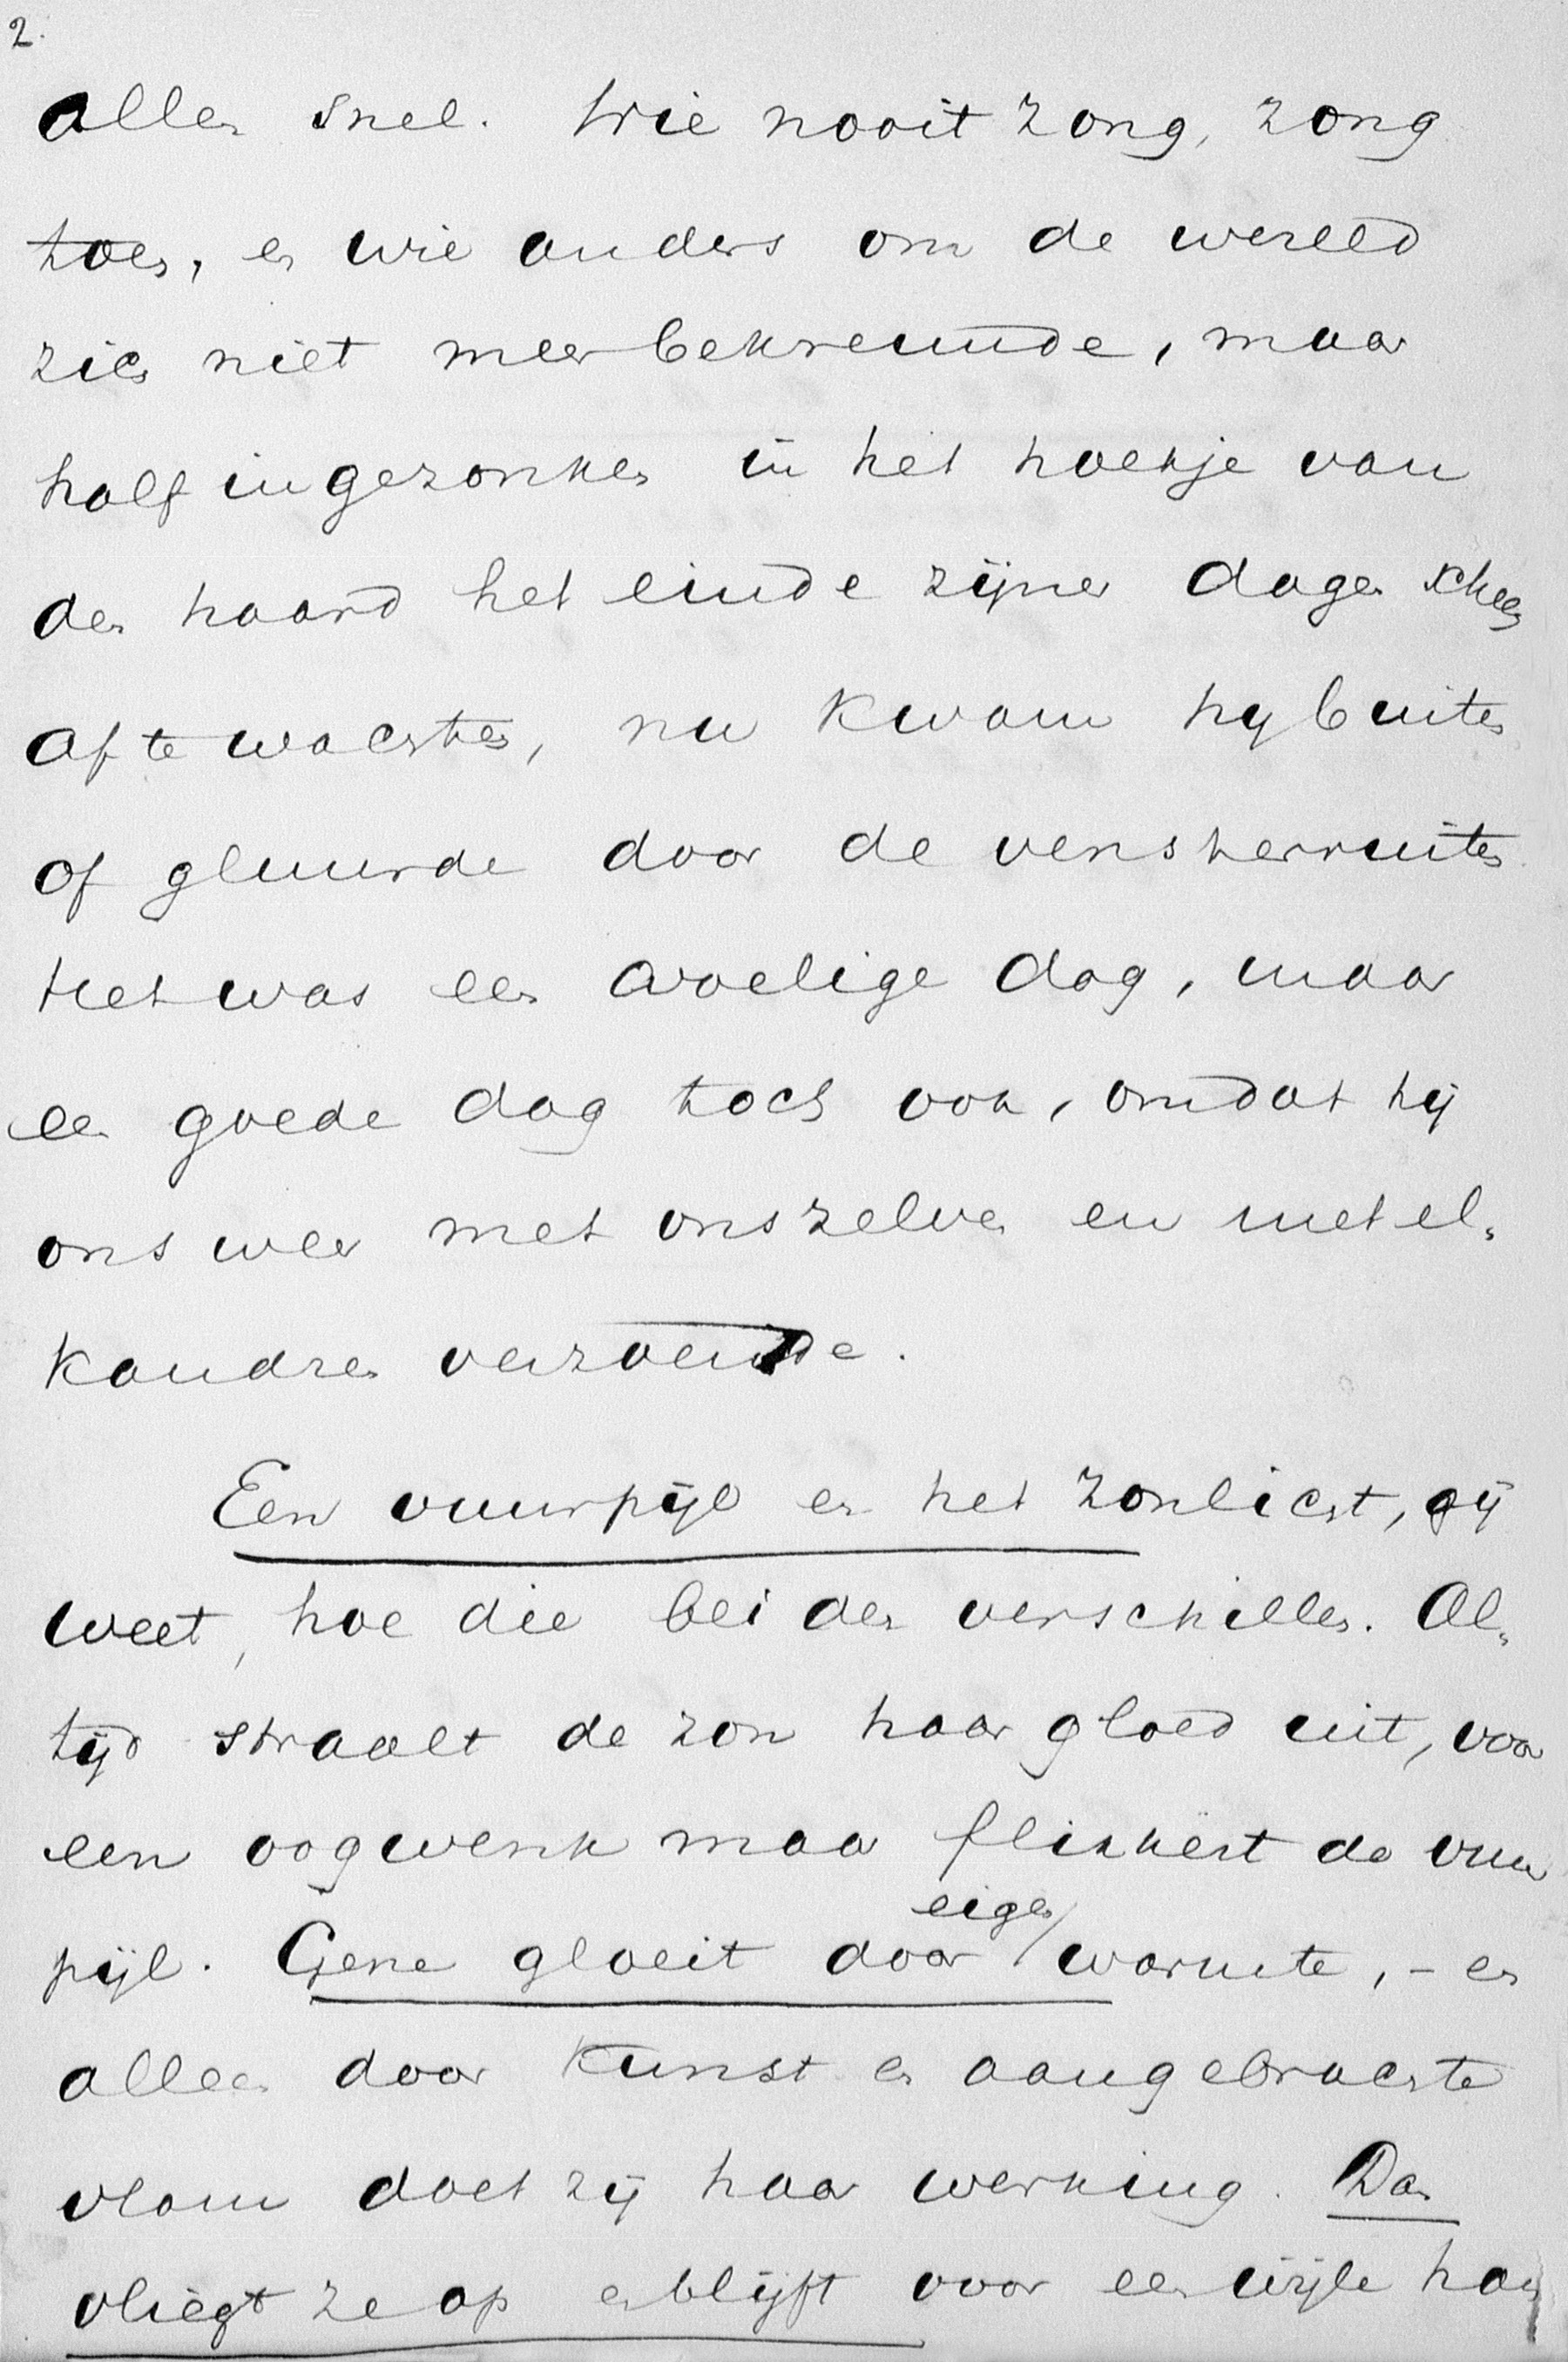 2.
allen snel. Wie nooit zong, zong
toen, en wie anders om de wereld
zich niet meer bekreunde, maar
half ingezonken in het hoekje van
den haard het einde zijner dagen scheen
af te wachten, nu kwam hy buiten
of gluurde door de vensterruiten
Het was een woelige dag, maar
een goede dag toch ook, omdat hij
ons weer met onszelven en met el-
kandren verzoende.
Een vuurpijl en het zonlicht, gij
weet, hoe die beiden verschillen. Al-
tijd straalt de zon haar gloed uit, voor
een oogwenk maar flikkert de vuur
pijl. Gene gloeit door eigen warmte, - en
alleen door kunst en aangebrachte
vlam doet zij haar werking. Dan
vliegt ze op en blijft voor een wijle haar